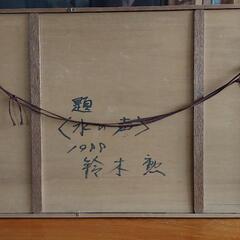 題
〈水の声〉
1988
鈴木 勲